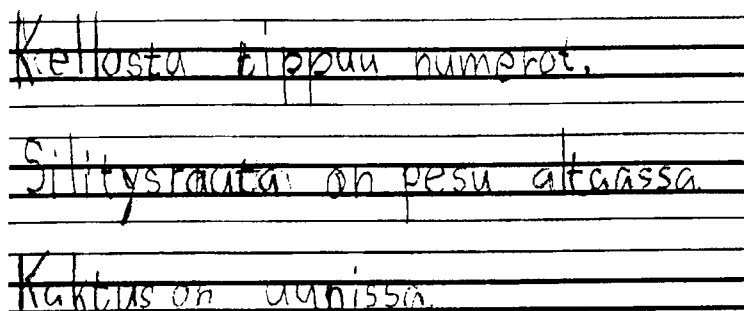 Kellosta tippuu numerot.
Silitysrauta on pesu altaassa
Kaktus on uunissa.